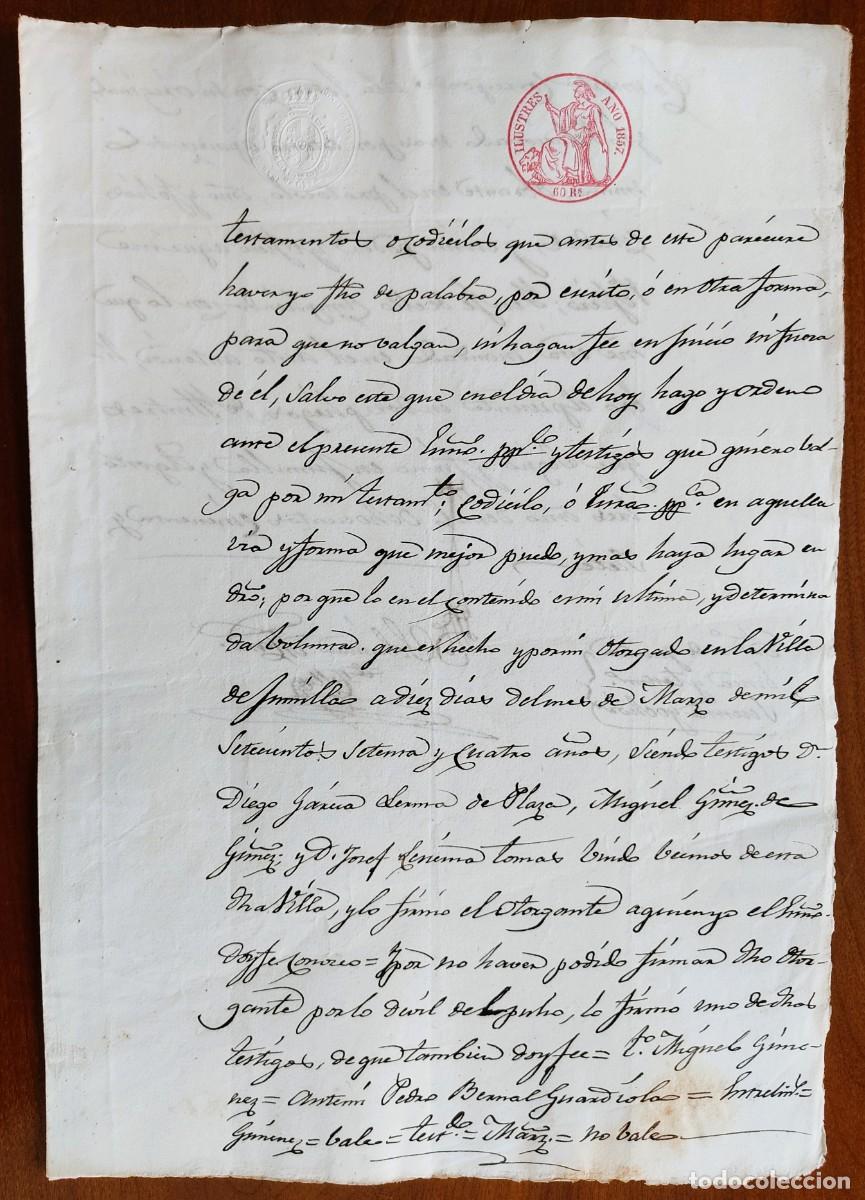 ILUSTRES AÑO 1857.
60 Rs.
testamentos o Codicilos que antes de este pareciere
haver yo fho de palabra, por escrito, ó en otra forma,
para que no valgan, ni hagan fee en Juicio ni fuera
de él, salvo este que en el dia de hoy hago y ordeno
ante el presente Essno. ppco. y testigos que quiero bal-
ga por mi testamto., Codicilo, ó Essra. ppca. en aquella
via y forma que mejor puedo, y mas haya lugar en
dro; por que lo en el Contenido es mi ultima, y determina
da boluntad. que es hecho y por mi otorgado en la Villa
de Jumilla a diez dias del mes de Marzo de mil
Setecientos Setenta y Cuatro años, siendo testigos Dn.
Diego Garcia Lerma de Plaza, Miguel Gimez. de
Gimez; y Dn. Josef tomas becinos de esta
dha Villa, y lo firmó el otorgante a quien yo el Essno.
doy fe conozco = Y por no haver podido firmar dho otor-
gante por lo devil del pulso, lo firmó uno de dhos
testigos, de que tambien doy fee = to. Miguel Gime-
nez = Antemi Pedro Bernal Guardiola = Entrelins. =
Gimenez = bale = testdo. = = no vale
todocoleccion